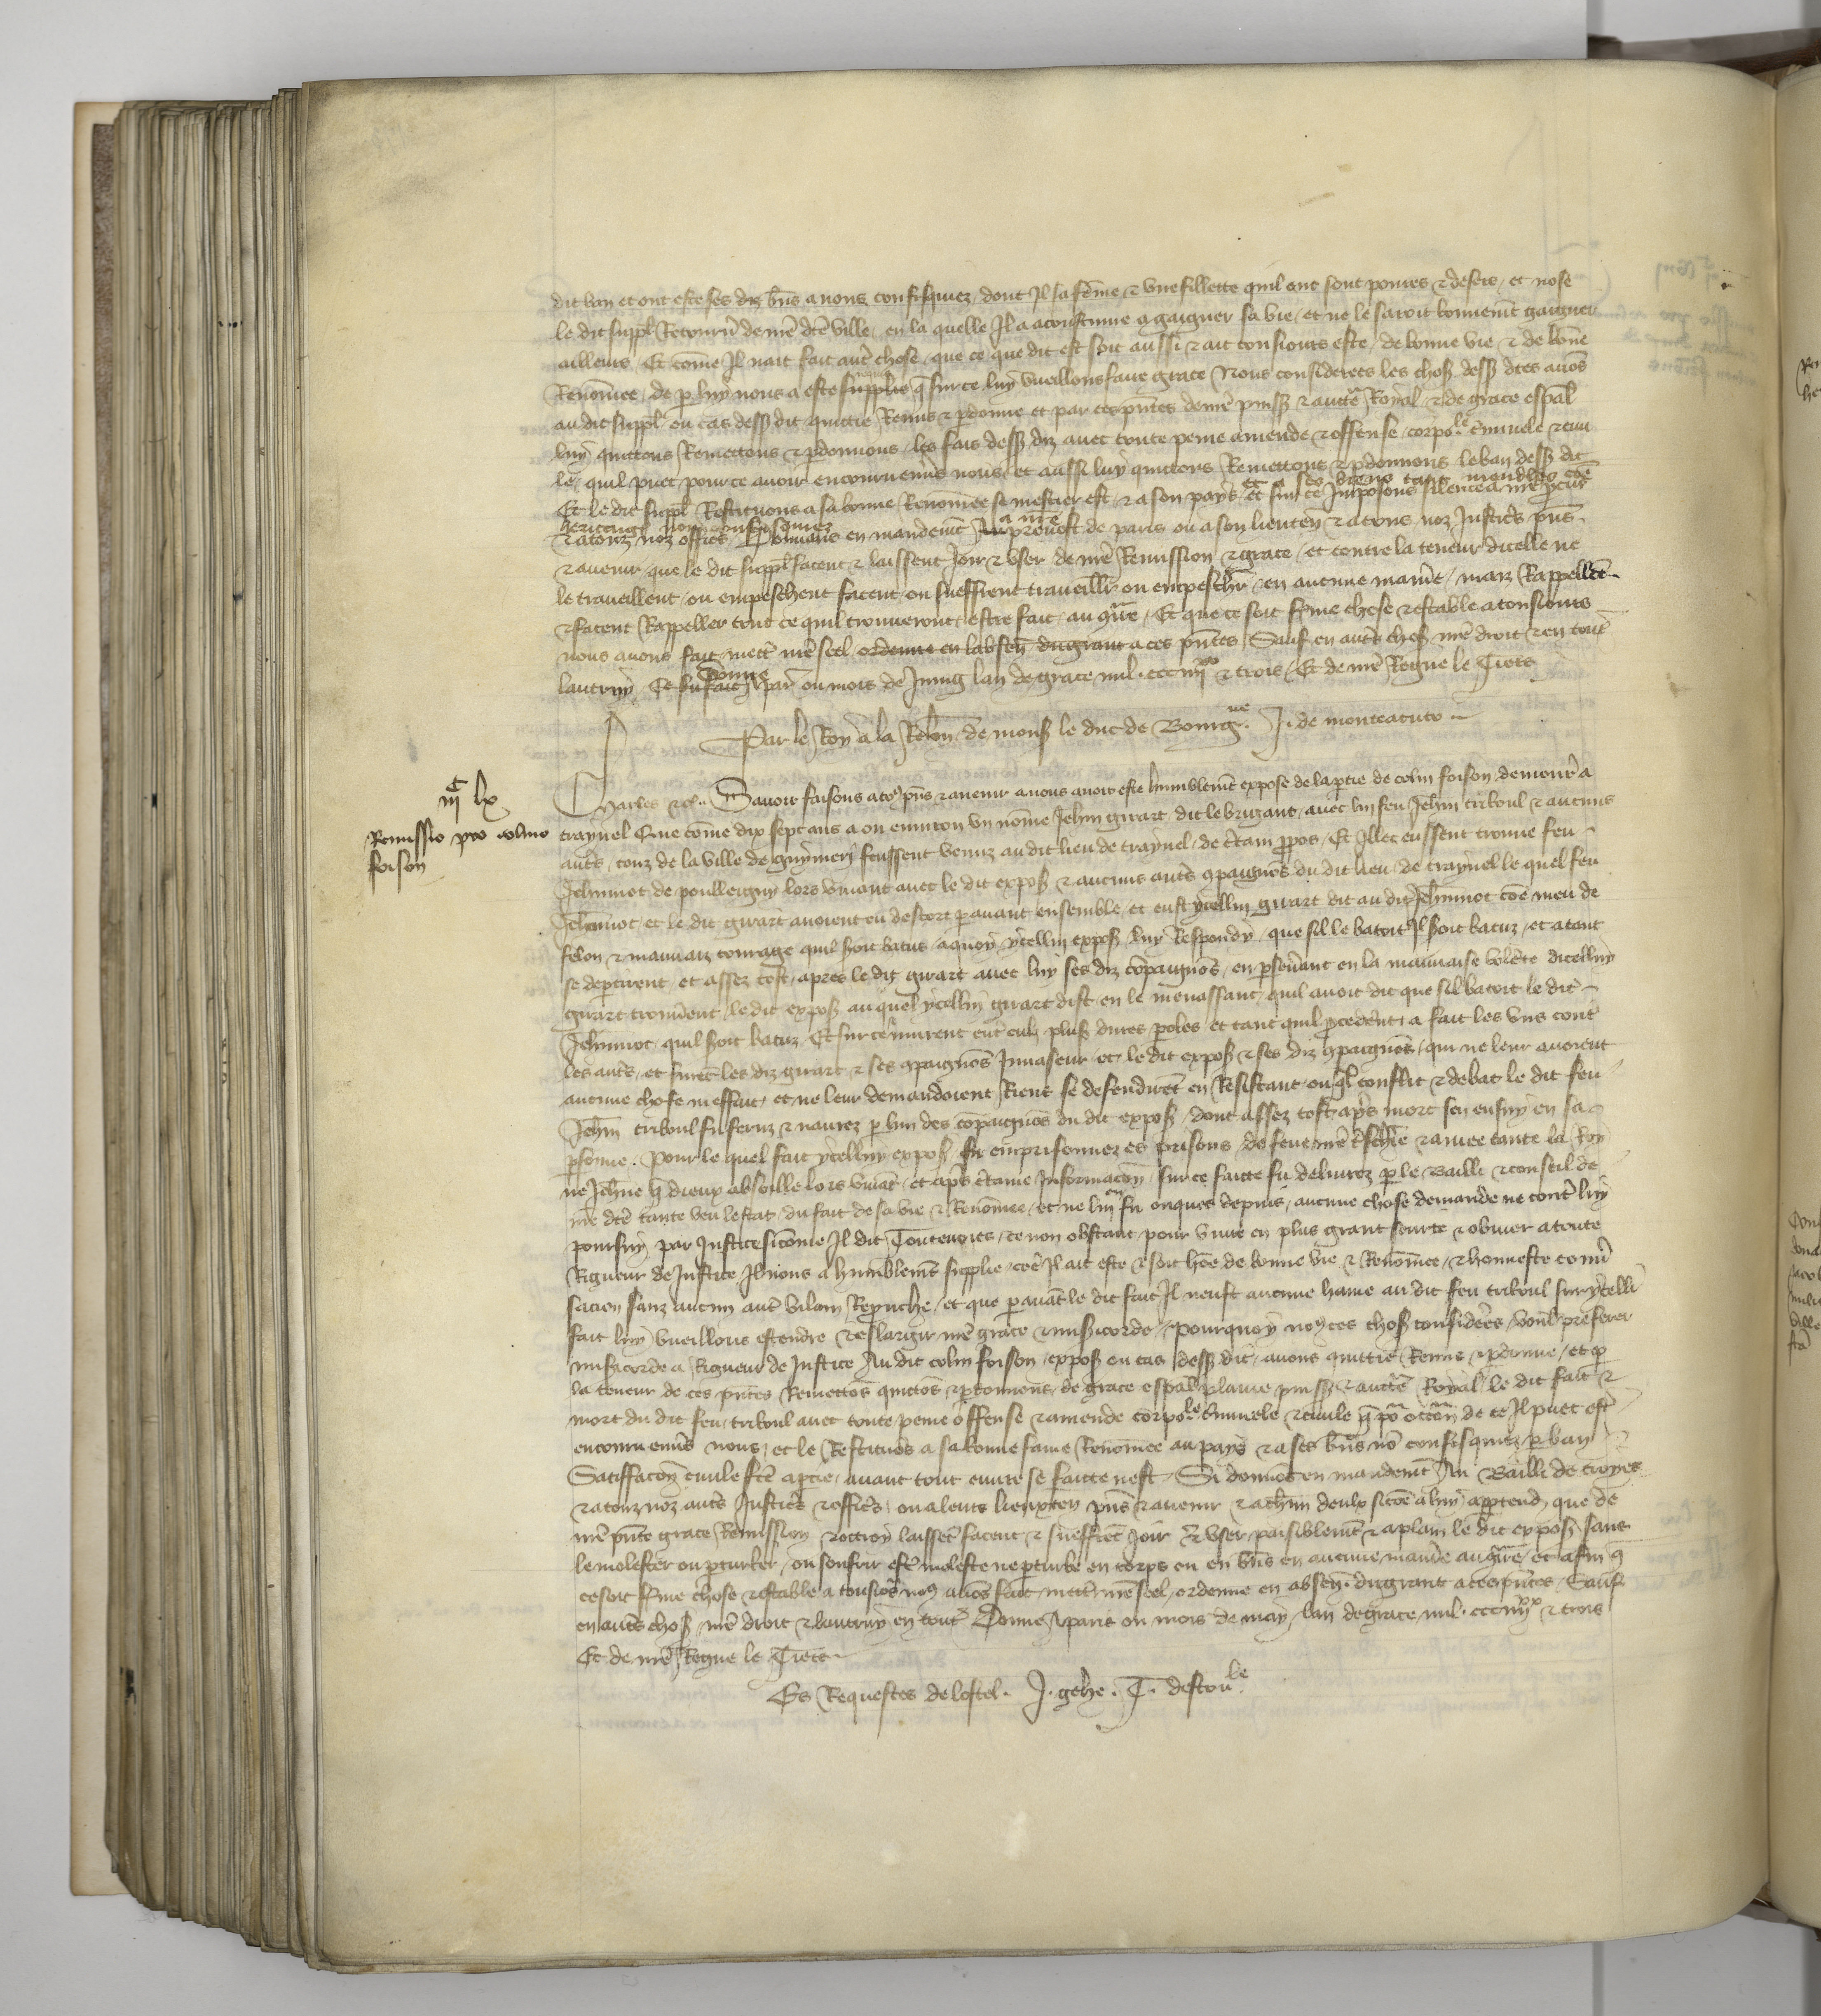 dit ban et ont este ses diz biens a nous confisquez dont Il sa feme & une fillette quil ont sont poures & desers et nose
le dit suppl Retourner de nre dce ville en la quelle Il a acoustume a gaigner sa vie et ne le saroit bonnemt gaigner
ailleurs Et come Il nait fait autre chose que ce que dit est soit aussi & ait tousiours este de bonne vie & de bone
Renomee de par luy nous a este supplie que sur ce luy vueillons faire grace Nous considerees les choses dess dces avos
au dit suppl ou cas dess dit quittie Remis & pardonne et par ces pntes de nre puiss & aucte Royal & de grace espal
luy quittons Remettons & pardonnons les fais dess diz avec toute peine amende & offense corpole criminele & civi
le quil puet pour ce avoir encouru envers nous et aussi luy quittons Remettons & pardonnons le ban dess dit
Et le dit suppl Restituons a sa bonne Renomee se mestier est & a son pays et sur ce Imposons silence a nre procur
& a touz noz offices Donnans en mandemt au prevost de paris ou a son lieuten & a tous noz Justicers pns
& avenir que le dit suppl facent & laissent Joir & user de nre Remission & grace et contre la teneur dicelle ne
le traveillent ou empeschent facent ou sueffrent traveillr ou empeschr en aucune maniere maiz Rappellent
& facent Rappeller tout ce quil trouveront estre fait au contraire Et que ce soit ferme chose & estable a tousiours
nous avons fait mettre nre seel ordenne en labsen du grant a ces pntes Sauf en autres choses nre droit & en toutes
lautruy Ce fu fait donne a paris ou mois de Juing lan de grace mil ccc iiiixx & trois Et de nre Regne le Tiers
Par le Roy a la Relon de mons le duc de Bourgne J. de monteacuto
iiic lx
Remissio pro colino
foison
Charles &c Savoir faisons a tos pns & avenir a nous avoir este humblemt expose de la partie de colin foison demourant a
traynel Que come dix sept ans a ou environ un nome Jehan girart dit le brigant avec lui feu Jehan tirboul & aucuns
autres touz de la ville de guymery feussent venuz au dit lieu de traynel de certain propos Et Illec eussent trouve feu
Jehannot de poulleigny lors vivant avec le dit expos & aucuns autres compaignos du dit lieu de traynel le quel feu
Jehannot et le dit girart avoient eu descort paravant ensemble et eust ycellui girart dit au dit Jehannot come meu de
felon & mauvaiz courage quil seroit batus a quoy ycellui expos luy Respondy que sil le batoit Il seroit batuz et atant
se departirent et assez tost apres le dit girart avec luy ses diz compaignos en perseverant en la mauvaise volente dicelluy
girart trouverent le dit expos au quel ycellui girart dist en le menassant quil avoit dit que sil batoit le dit
Jehannot quil seroit batuz Et sur ce murent entre eulz pluss dures paroles et tant quil procederent a fait les uns contre
les autres et furent les diz girart & ses compaignos Invaseur et le dit expos & ses diz compaignos qui ne leur avoient
aucune chose meffait et ne leur demandoient Riens se defendirent en Resistant ou quel conflit & debat le dit feu
Jehan tirboul fu feruz & navrez par lun des compaignos du dit expos dont assez tost apres mort sen ensuy en sa
personne Pour le quel fait ycelluy expos fu emprisonnez es prisons de feue nre treschiere & amee tante la Roy
ne Jehanne que dieux absoille lors vivat et apres certaine Informacion sur ce faicte fu delivrez par le Bailli & conseil de
nre dce tante veu lestat du fait de sa vie & Renomee et ne lui en fu onques depuis aucune chose demande ne contre luy
poursuy par Justice si come Il dit Toutevoies ce non obstant pour vivre en plus grant seurte & obvier a toute
Rigueur de Justice Il nous a humblemt supplie come Il ait este & soit home de bonne vie & Renomee & honneste conver
sacion sanz aucun autre vilain Reprouche et que paravat le dit fait Il neust aucune haine au dit feu tirboul sur ycelli
fait luy vueillons estendre & eslargir nre grace & misericorde Pourquoy nous ces choses considerees voulans preferer
misericorde a Rigueur de Justice Au dit colin foison expos ou cas dess dit avons quittie Remis & pardonne et par
la teneur de ces pntes Remettos quittos & pardonnons de grace espal plaine puiss & aucte Royal le dit fait &
mort du dit feu tirboul avec toute peine offense & amende corpole criminele & civile que pour occasion de ce Il puet estre
encouru envers nous et le Restituos a sa bonne fame Renomee au pays & a ses biens non confisquez par ban
Satiffacon civile fce a partie avant tout euvre se faicte nest Si donnos en mandemt Au Bailli de troyes
& a touz noz autres Justicers & officers ou a leurs lieuxten pns & avenir & a chun deulx si come a luy appartendra que de
nre pnte grace Remission & octroy laissent facent & sueffrent Joir & user paisiblemt & a plain le dit expos sans
le molester ou perturber ou souffrir estre moleste ne perturbe en corps ou en biens en aucune maniere au contraire et afin que
ce soit ferme chose & estable a tousiors nous avos fait mettre nre seel ordenne en absen du grant a ces pntes Sauf
en autres choses nre droit & lautruy en toutes Donne a paris ou mois de may lan de grace mil ccc iiiixx & trois
Et de nre Regne le Tiers
Es Requestes de lostel J. gehe T. destouble